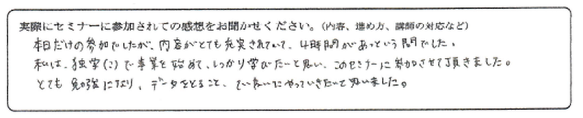 実際にセミナーに参加されての感想をお聞かせください。(内容、進め方、講師の対応など)
本日だけの参加でしたが、内容がとても充実されていて、4時間があっという間でした。
私は、独学(?)で事業を始めて、しっかり学びたいと思い、このセミナーに参加させて頂きました。
とても勉強になり、データをとること、ていねいにやっていきたいと思いました。